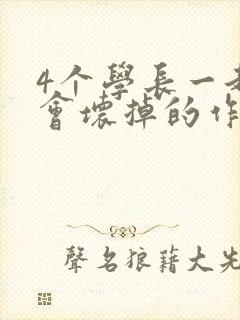 4个學長一
會壞掉的作
聲名狼藉大先